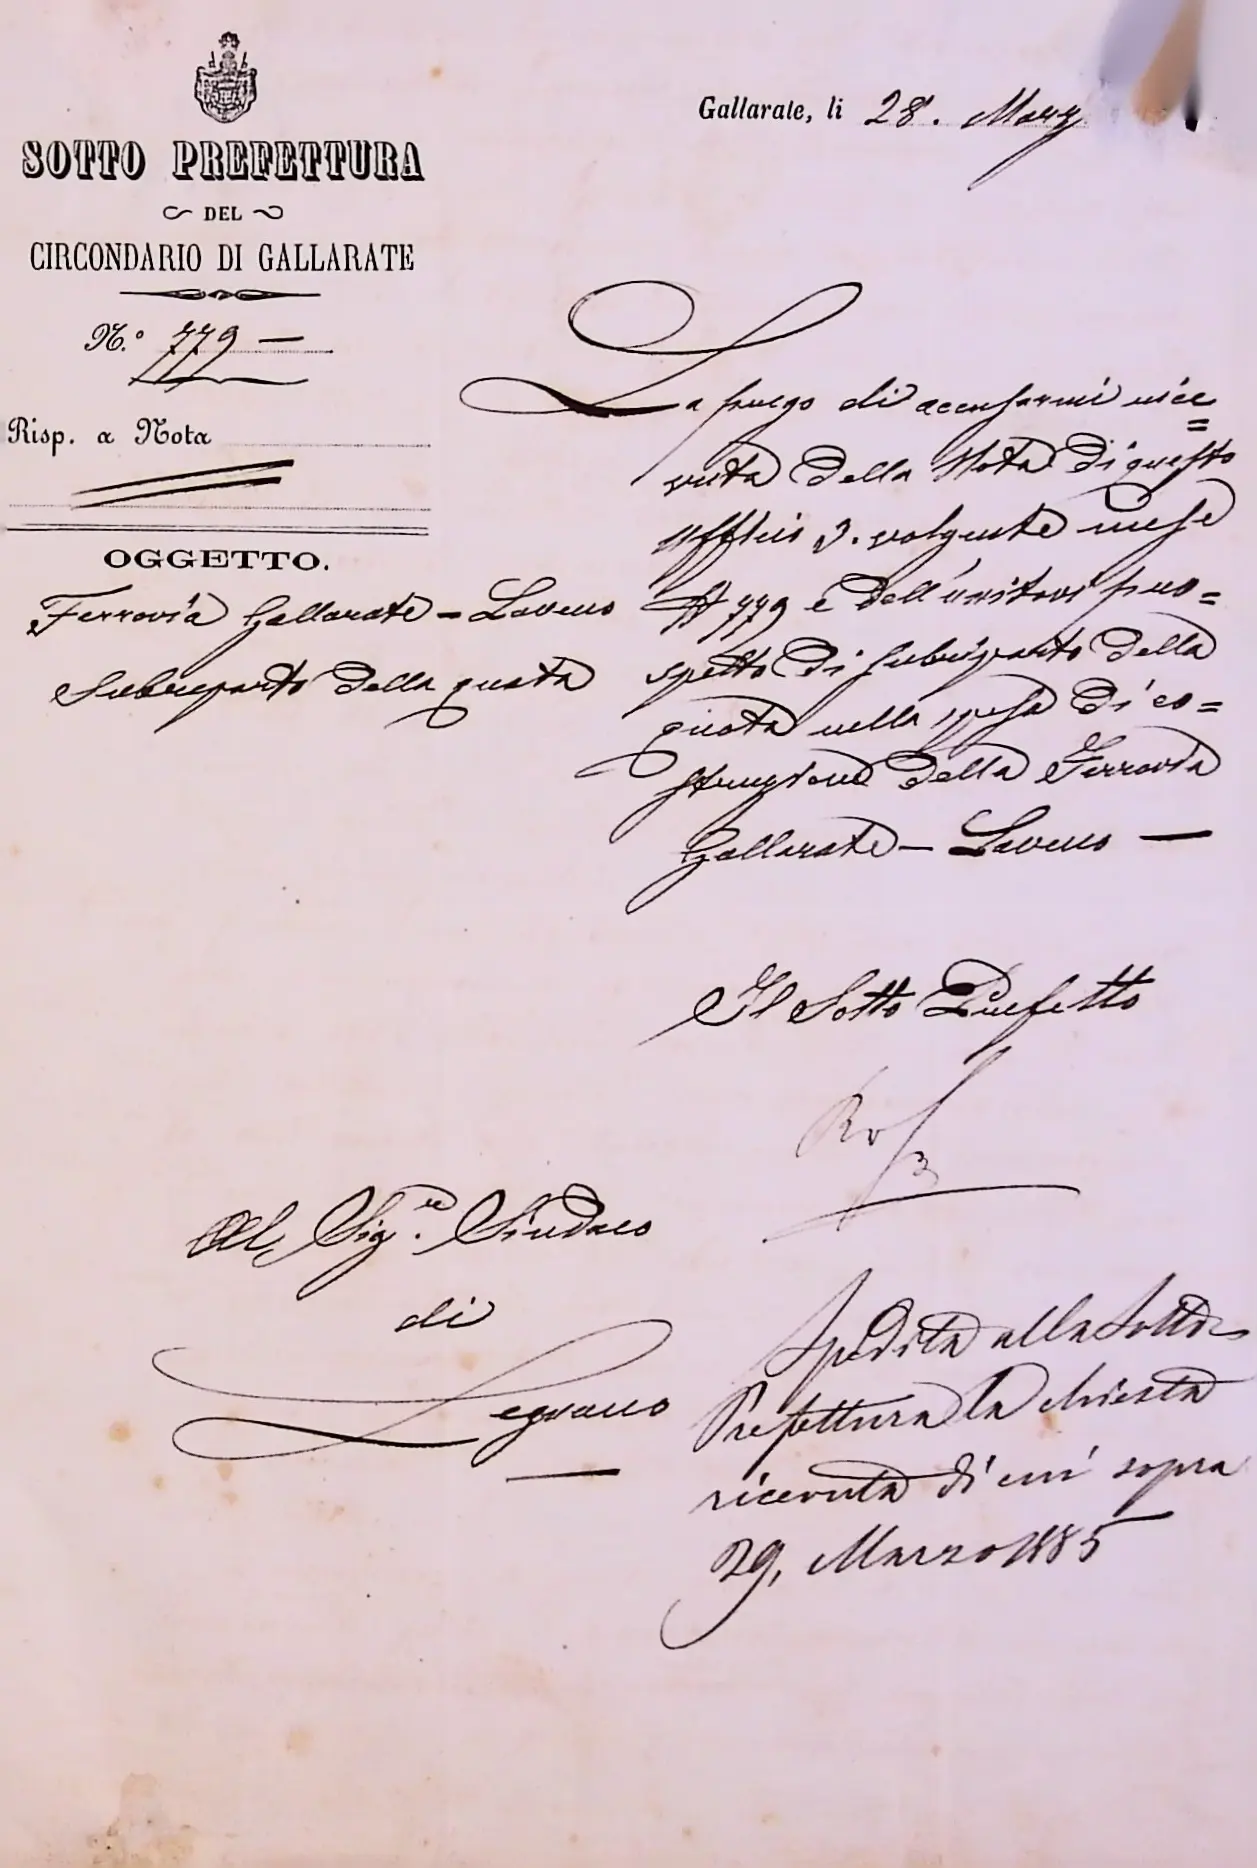 SOTTO PREFETTURA
DEL
CIRCONDARIO DI GALLARATE
N.° 779 —
Risp. a Nota
OGGETTO.
Ferrovia Gallarate - Laveno
Subriparto della quota
Gallarate, li 28. Marz
La prego di accusarmi rice=
vuta della Nota di questo
Ufficio 3. volgente mese
N 779 e dell'unitovi pro=
spetto di subriparto della
quota nella spesa di co=
struzione della Ferrovia
Gallarate - Laveno —
Il Sotto Prefetto
Al Sig.re Sindaco
di
Legnano
Spedita alla Sotto
Prefettura la chiesta
ricevuta di cui sopra
29, Marzo 1885